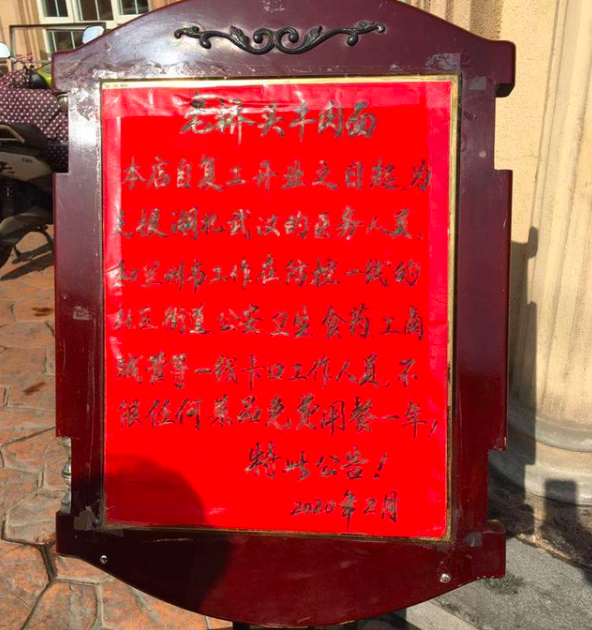 毛桥头牛肉面
本店自复工开业之日起,为
支援湖北武汉的医务人员,
和兰州市工作在防控一线的
社区、街道、公安、卫生、食药、工商
城管等一线卡口工作人员,不
限任何菜品免费用餐一年,
特此公告!
2020年2月